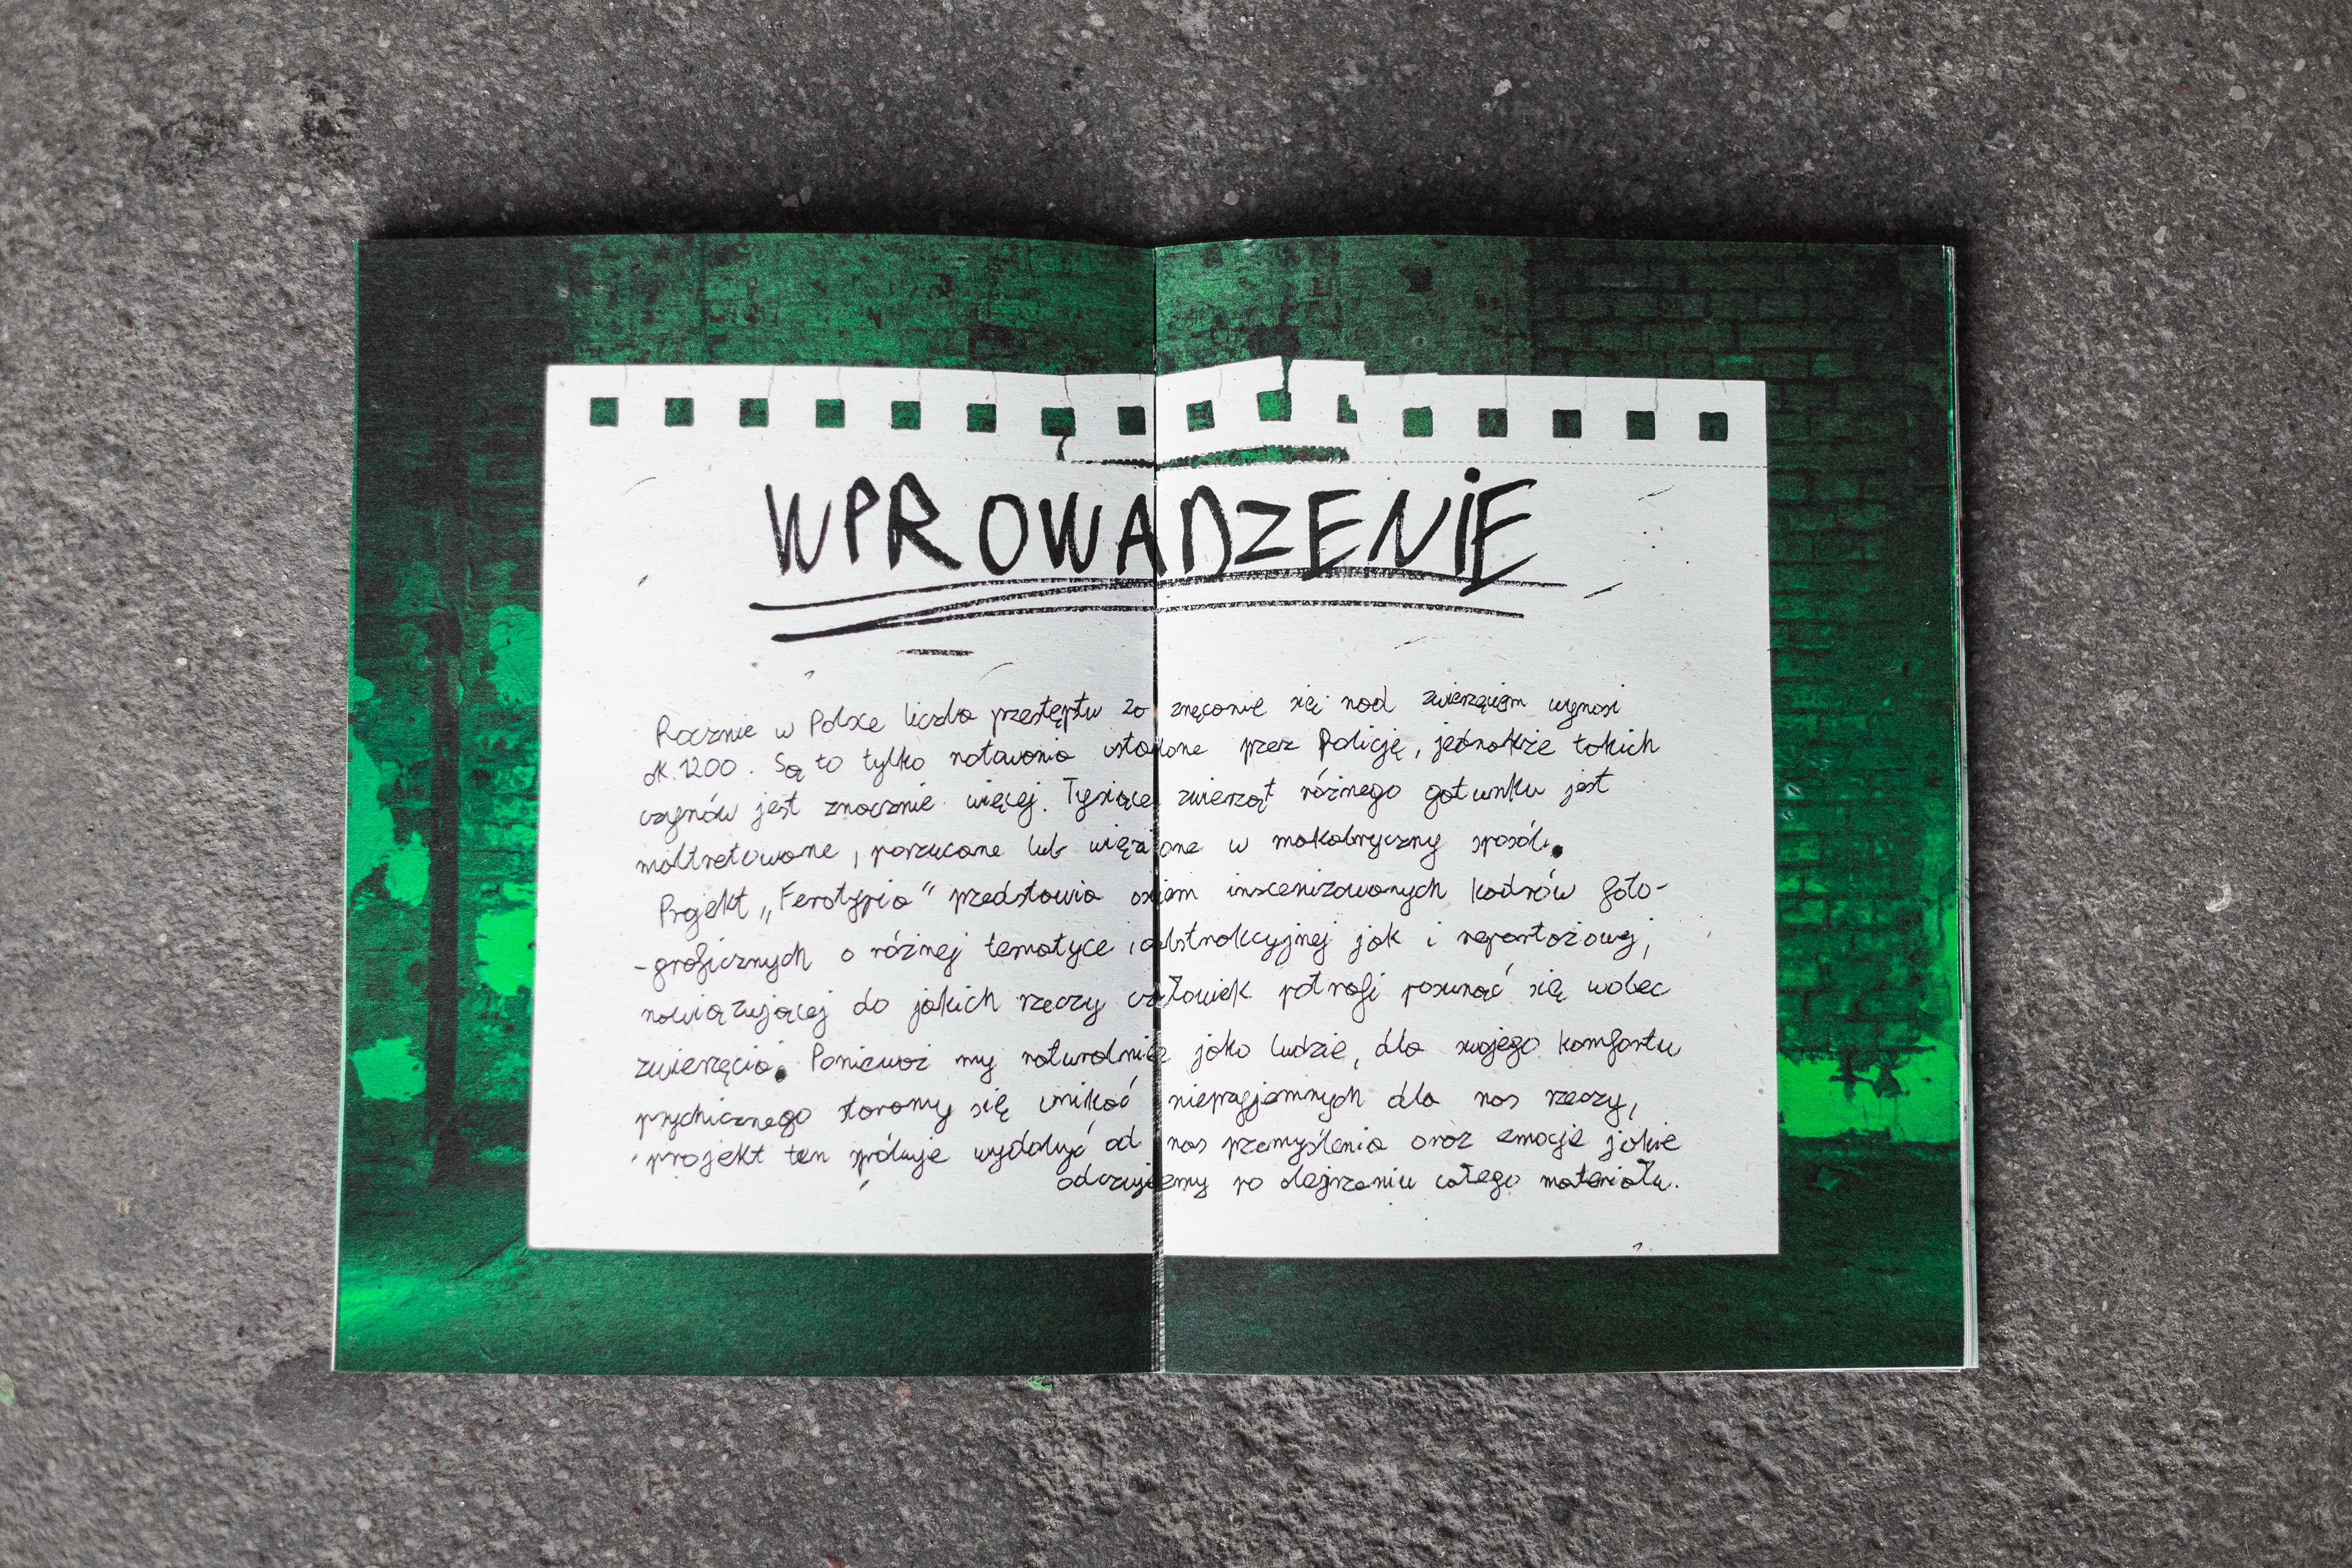 WPROWADZENIE
Rocznie w Polsce liczba przestęptw za znęcanie się nad zwierzęciem wynosi
ok. 1200. Są to tylko notowania ustalone przez Policję, jednakże takich
czynów jest znacznie więcej. Tysiące zwierząt różnego gatunku jest
maltretowane, porzucane lub więzione w makabryczny sposób.
Projekt „Ferotypia" przedstawia osiem inscenizowanych kadrów foto-
-graficznych o różnej tematyce, abstrakcyjnej jak i reportażowej,
nawiązującej do jakich rzeczy człowiek potrafi posunąć się wobec
zwierzęcia. Ponieważ my naturalnie jako ludzie, dla swojego komfortu
psychicznego staramy się unikać nieprzyjemnych dla nas rzeczy,
projekt ten próbuje wydobyć od nas przemyślenia oraz emocje jakie
odczujemy po obejrzeniu całego materiału.